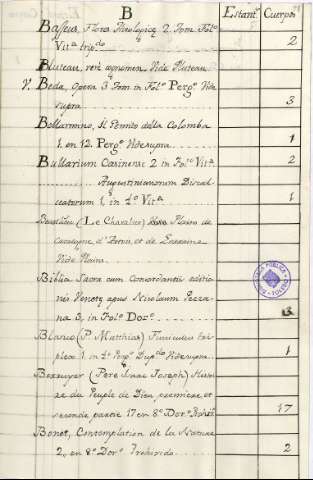 B
Estant.ˢ Cuerpos
Basseus, Flores Theologicæ 2. Tom. Fol.º
Vit.ª trip.do 2
Pluteau, Vide Pluteau
V. Beda, Opera 3 Tom in Fol.º Perg.º Vide
supra 3
Bellarmino, Il Gemito della Colomba
1. en 12. Perg.º Vide supra 1
Bullarium Casinense 2 in Fol.º Vit.ª 2
Augustinianorum Discal-
ceatorum 1, in 4.º Vit.ª 1
(Le Chevalier) Plans de
Campagne, d'
Vide Plans
Biblia Sacra cum Concordantiis editio
nis Venetæ apud Nicolaum Pezza-
na 3, in Fol.º Dor.º 3
Blanco (P. Matthias) Funiculus tri-
plex 1. in 4.º Perg.º Dup.do Vide supra 1
Berruyer (Pere Isaac Joseph) Histoi-
re du Peuple de Dieu, premiere, et
seconde partie 17 en 8.º Dor.º Prohib. 17
Bonet, Contemplation de la Nature
2, en 8.º Dor.º Prohivido 2